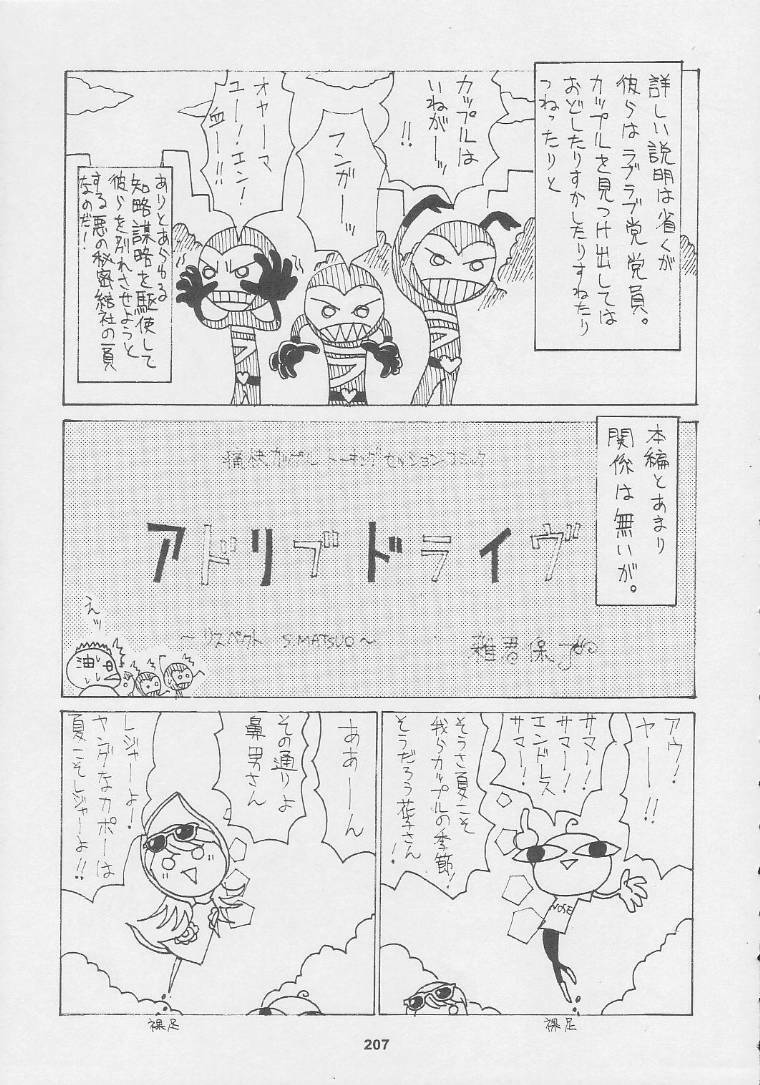 詳しい説明は省くが
彼らはラブラブ党党員。
カップルを見つけ出しては
おどしたりすかしたりすねたり
つねったりと
カップルは
いねがーッ
!!
フンガーッ
オヤーマ
ユー！エン！
ー!!
ありとあらゆる
知略謀略を駆使して
彼らを別れさせようと
する悪の秘密結社の員
なのだ！
ラブ
ラブ
ラブ
本編とあまり
関係は無いが。
痛快カップルトーキングセッションコミック
アドリブドライヴ
～リスペクト S.MATSUO～
えッ
油
アウ！
ヤー!!
サマー！
サマー！
エンドレス
サマー！
そうさ夏こそ
我らカップルの季節！
そうだろう花子さん！
NOSE
裸足
ああーん
その通りよ
鼻男さん
レジャーよー！
ヤングなカポーは
夏こそレジャーよ!!
裸足
207